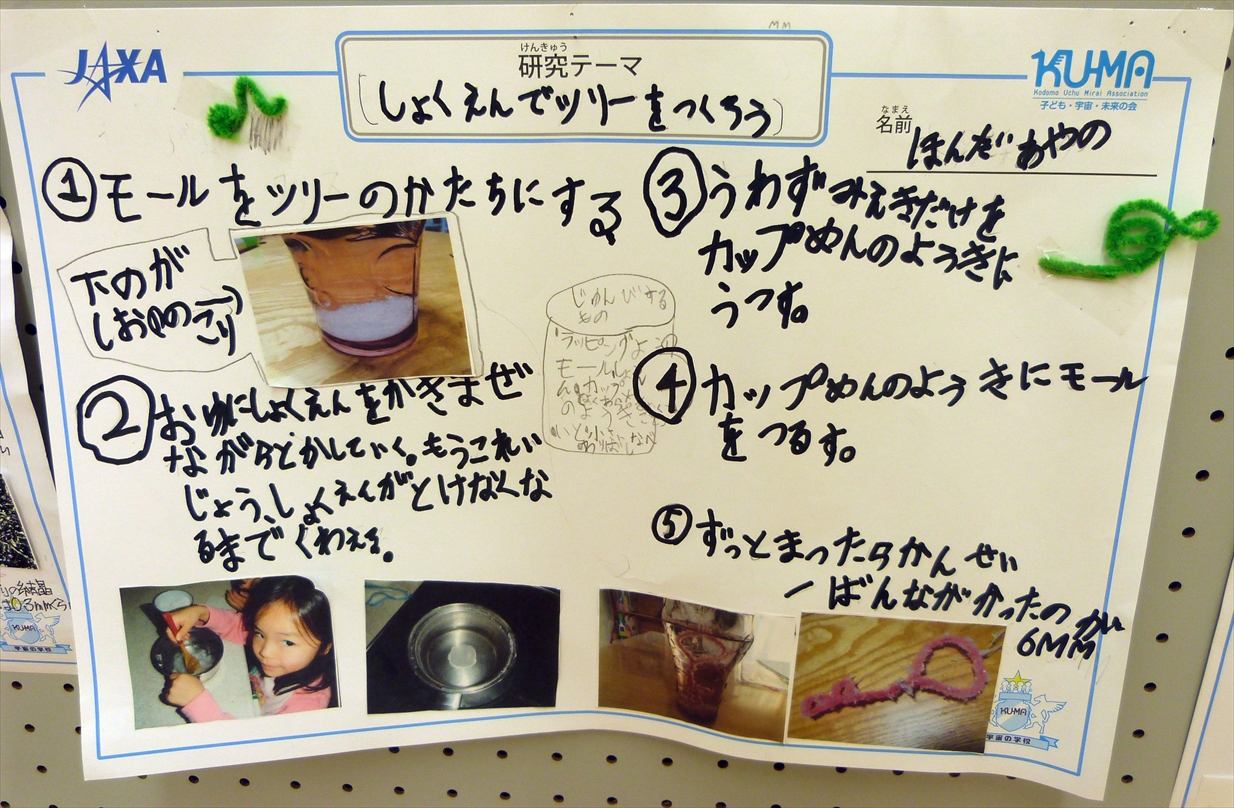 MM
JAXA
けんきゅう
研究テーマ
しょくえんでツリーをつくろう
KU-MA
Kodomo Uchu Mirai Association
子ども・宇宙・未来の会
なまえ
名前
ほんだ あやの
① モールをツリーのかたちにする
下のが
しおゆのこり
② おゆにしょくえんをかきまぜ
ながらとかしていく。もうこれい
じょう、しょくえんがとけなくな
るまでくわえる。
じゅんびする
もの
ラッピングよう
モール
③ うわずみえきだけを
カップめんのようきに
うつす。
④ カップめんのようきにモール
をつるす。
⑤ ずっとまったらかんせい
一ばんながかったのが
6MM
KU-MA
宇宙の学校
の結晶
0.3mmくら
宇宙の学校